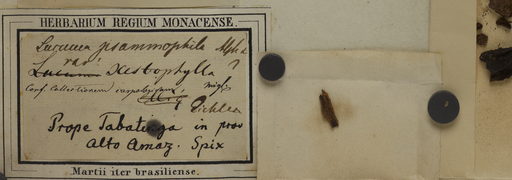 HERBARIUM REGIUM MONACENSE.
Lucuma psammophila
var. Xestophylla
Conf. Collectionem
Eichler
Prope Tabatinga in prov
Alto Amaz. Spix
Martii iter brasiliense.